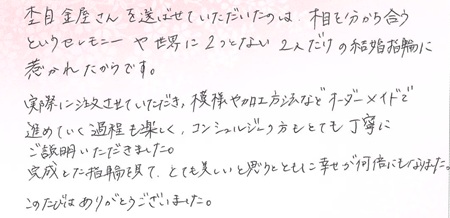 杢目金屋さんを選ばせていただいたのは、木目を分かち合う
というセレモニーや世界に2つとない2人だけの結婚指輪に
惹かれたからです。
実際に注文させていただき、模様や加工方法などオーダーメイドで
進めていく過程も楽しく、コンシェルジュの方もとても丁寧に
ご説明いただきました。
完成した指輪を見て、とても美しいと思うとともに幸せが何倍にもなりました。
このたびはありがとうございました。